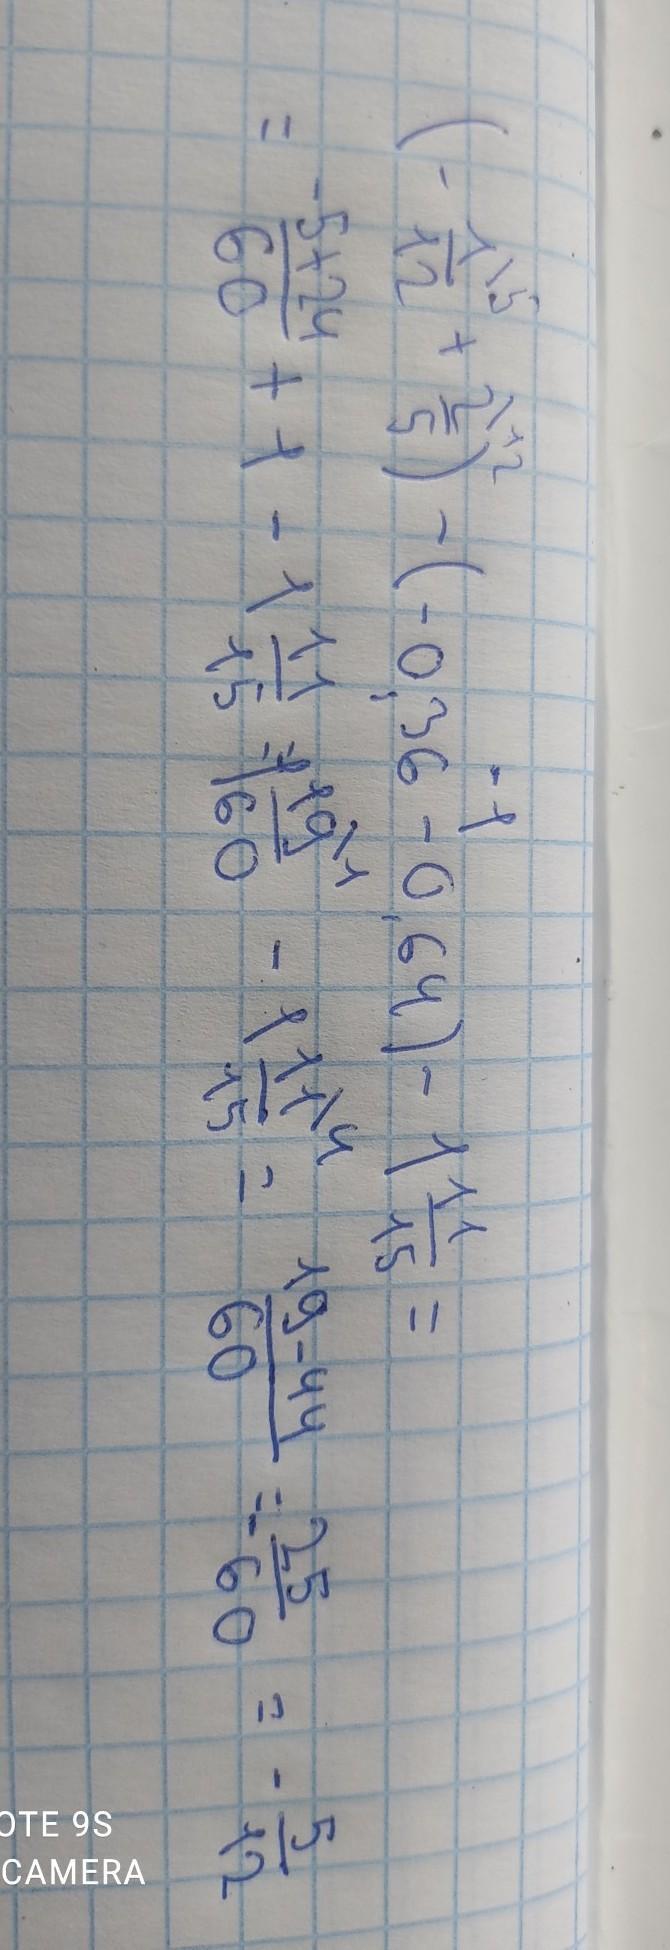 -1
(- 1\5/12 + 2\12/5) - (-0,36 - 0,64) - 1 11/15 =
= -5+24/60 + 1 - 1 11/15 = 1 19\1/60 - 1 11\4/15 = 19-44/60 = - 25/60 = - 5/12
OTE 9S
CAMERA